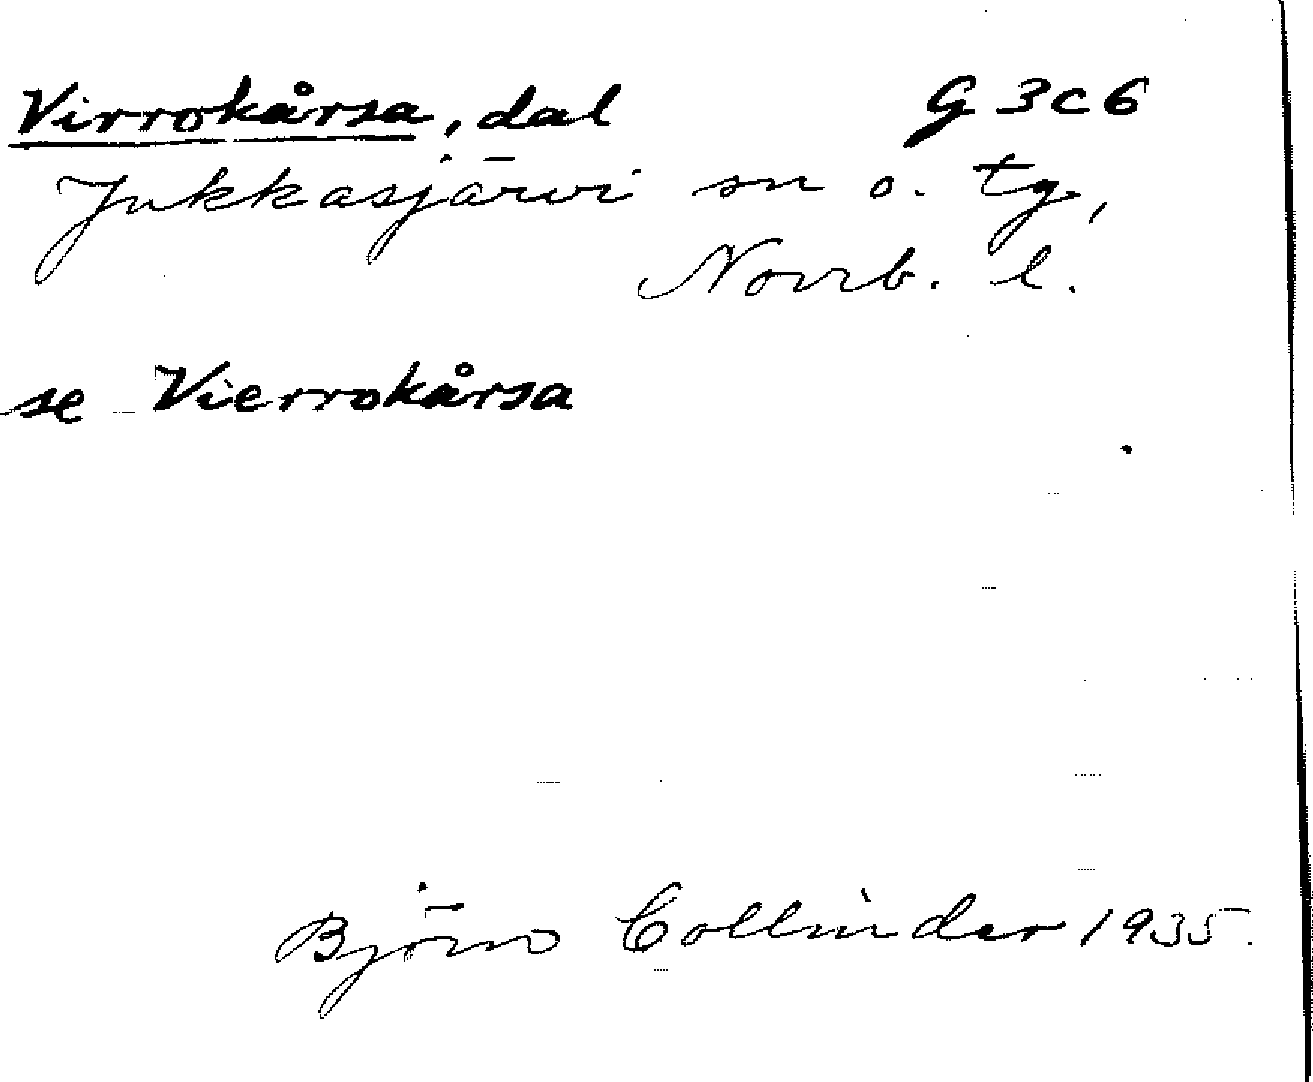 Virrokårsa, dal G 3 c 6
Jukkasjärvi sn o. tg,
Norrb. l.
se Vierrokårsa
Björn Collinder 1935.